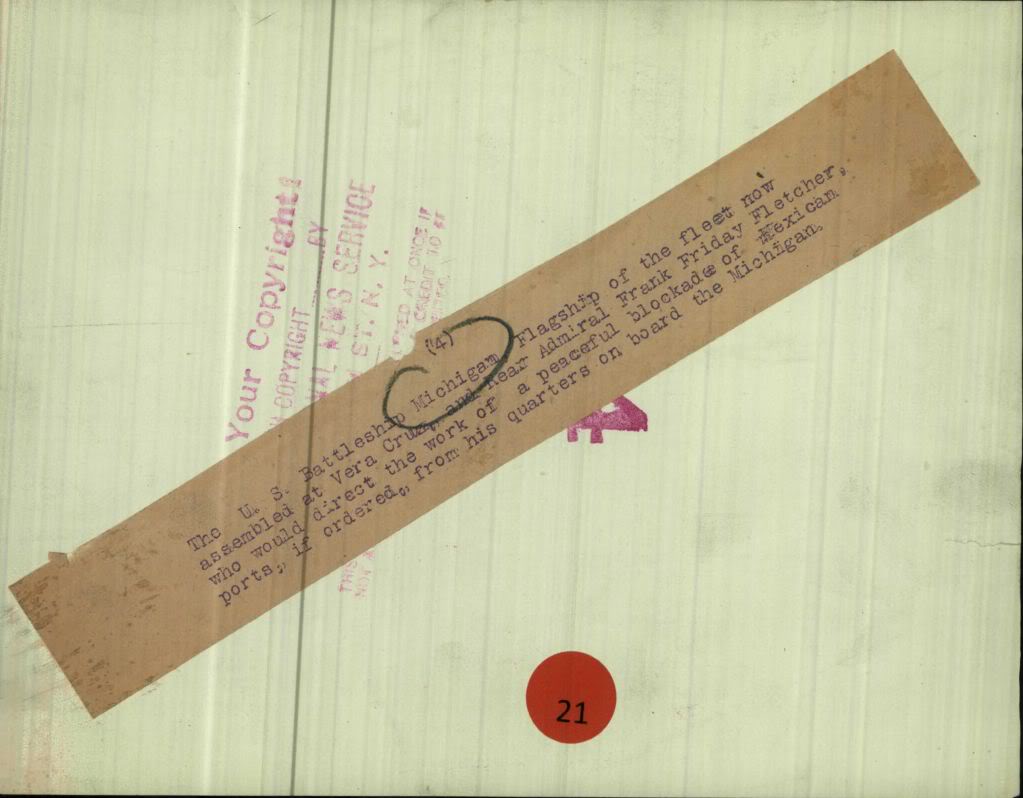 (4)
The U. S. Battleship Michigan, Flagship of the fleet now
assembled at Vera Cruz, and Rear Admiral Frank Friday Fletcher,
who would direct the work of a peaceful blockade of Mexican
ports, if ordered, from his quarters on board the Michigan.
Your Copyright
COPYRIGHT BY
NEWS SERVICE
ST. N. Y.
AT ONCE IF
CREDIT TO
THIS
21